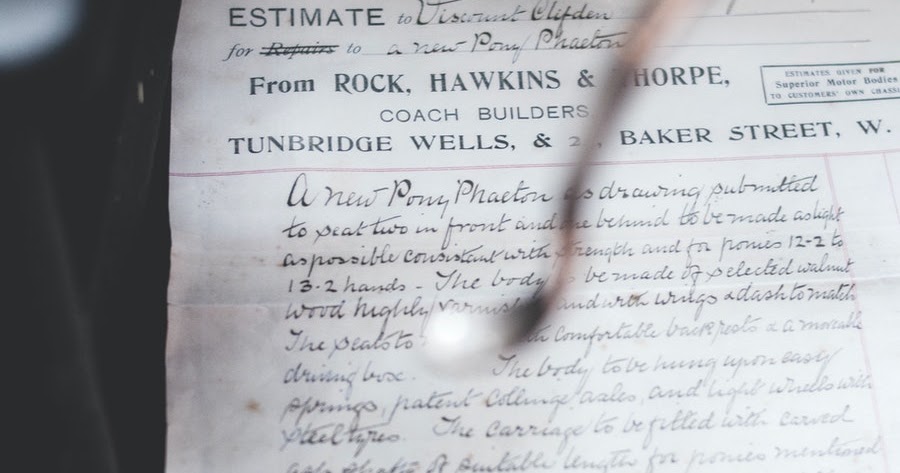 ESTIMATE to Viscount Clifden
for Repairs to a new Pony Phaeton
From ROCK, HAWKINS & THORPE,
ESTIMATES GIVEN FOR
Superior Motor Bodies
TO CUSTOMERS' OWN CHASSIS
COACH BUILDERS
TUNBRIDGE WELLS, & 2 , BAKER STREET, W.
A new Pony Phaeton as drawing submitted
to seat two in front and one behind to be made as light
as possible consistent with strength and for ponies 12-2 to
13-2 hands - The body to be made of selected walnut
wood highly varnished and with wings & dash to match
The seats to with comfortable back rests & a moveable
driving box. The body to be hung upon easy
springs, patent Collinge axles, and light wheels with
steel tyres. The carriage to be fitted with carved
ash shafts of suitable length for ponies mentioned